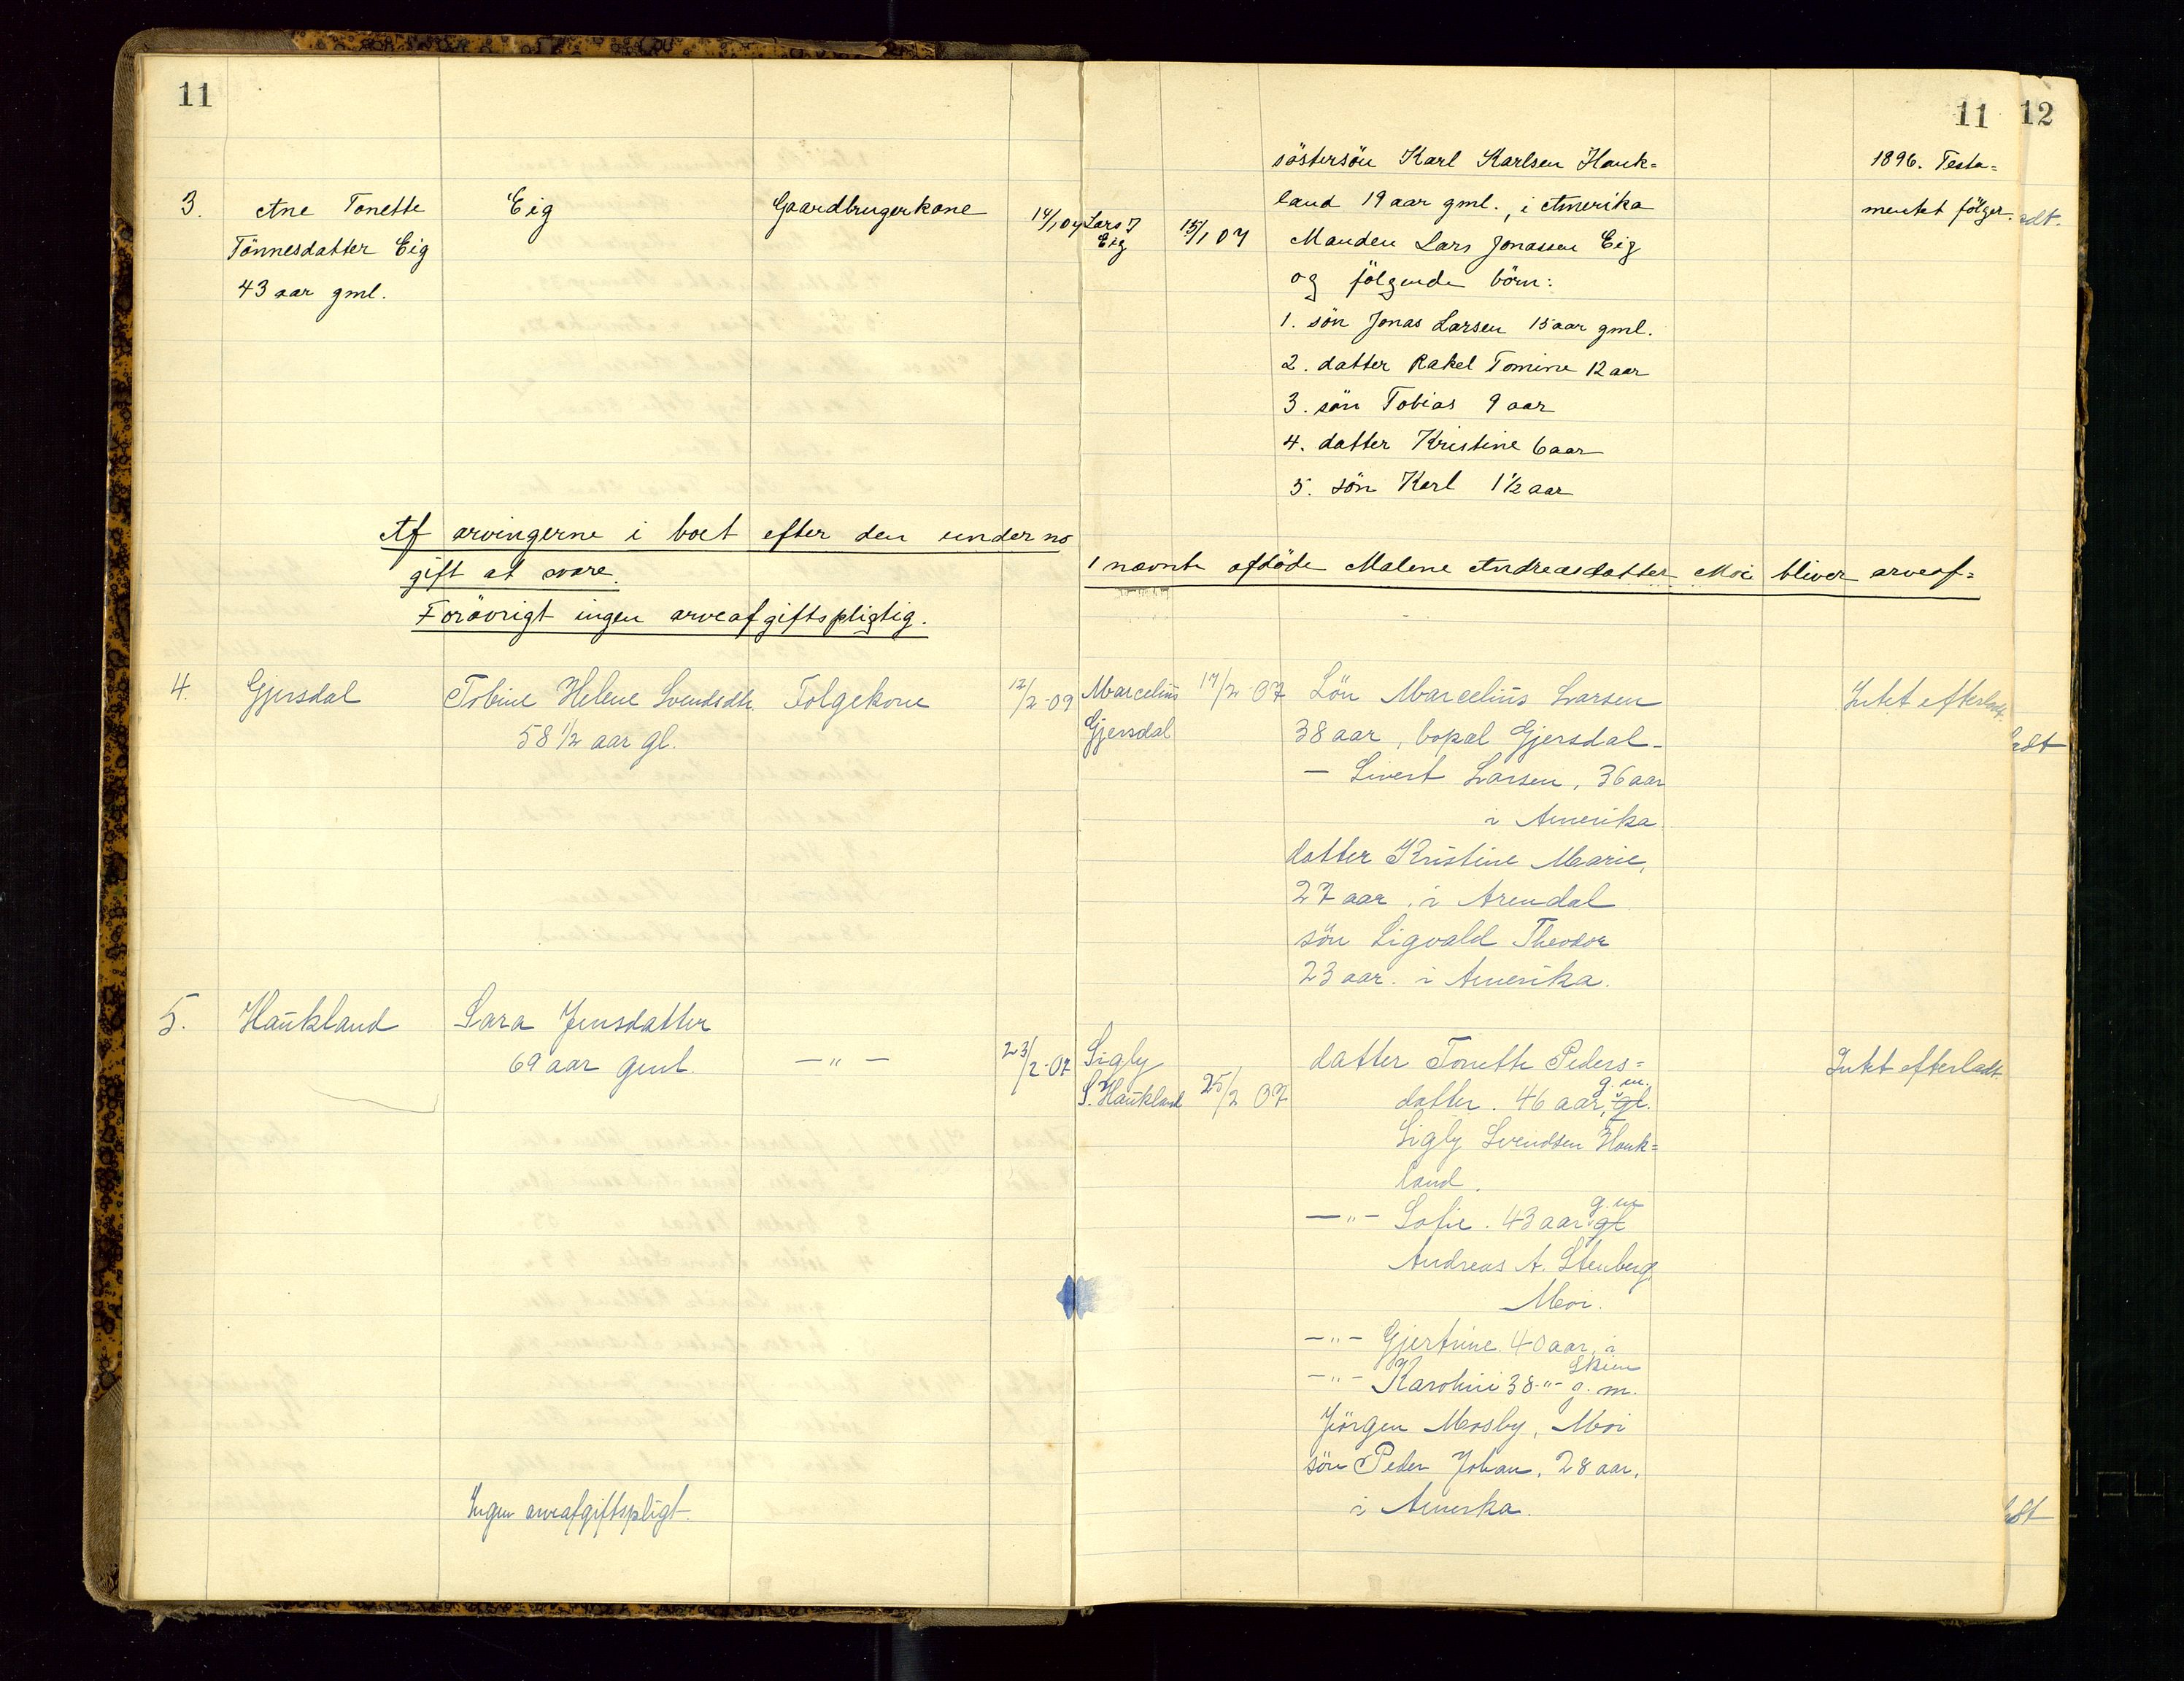 11
11 12
söstersön Karl Karlsen Hauk=
land 19 aar gml., i Amerika
1896. Testa=
mentet fölger.
adt.
3. Ane Tonette Eig Gaardbrugerkone 14/1 07 Lars J 15/1 07 Manden Lars Jonassen Eig
Tönnesdatter Eig Eig og fölgende börn:
43 aar gml.
1. sön Jonas Larsen 15 aar gml.
2. datter Rakel Tomine 12 aar
3. sön Tobias 9 aar
4. datter Kristine 6 aar
5. sön Karl 1½ aar
Af arvingerne i boet efter den under no
1 nævnte afdöde Malene Andreasdatter Moi bliver arveaf=
gift at svare.
Forövrigt ingen arveafgiftspligtig.
4. Gjersdal Tobine Helene Svendsdtr. Folgekone 12/2-07 Marcelius 14/2-07 Sön Marcelius Larsen Intet efterladt.
58 1/2 aar gl. Gjersdal 38 aar, bopæl Gjersdal
adt
— Sivert Larsen, 36 aar
i Amerika.
datter Kristine Marie,
27 aar, i Arendal
sön Sigvald Theodor
23 aar. i Amerika.
5. Haukland Sara Jensdatter
69 aar gml. —"— 23/2-07 Sigly datter Tonette Peders= Intet efterladt.
S. Haukland 25/2 07 datter. 46 aar, gl. g. m.
Sigly Svendsen Hauk=
land.
—"— Sofie. 43 aar gl g. m
Andreas A. Stenberg
Moi.
—"— Gjertine. 40 aar, i
Skien
—"— Karoline 38 -"- g. m.
Jörgen Mosby, Moi
sön Peder Johan, 28 aar,
i Amerika.
Ingen arveafgiftspligt.
adt